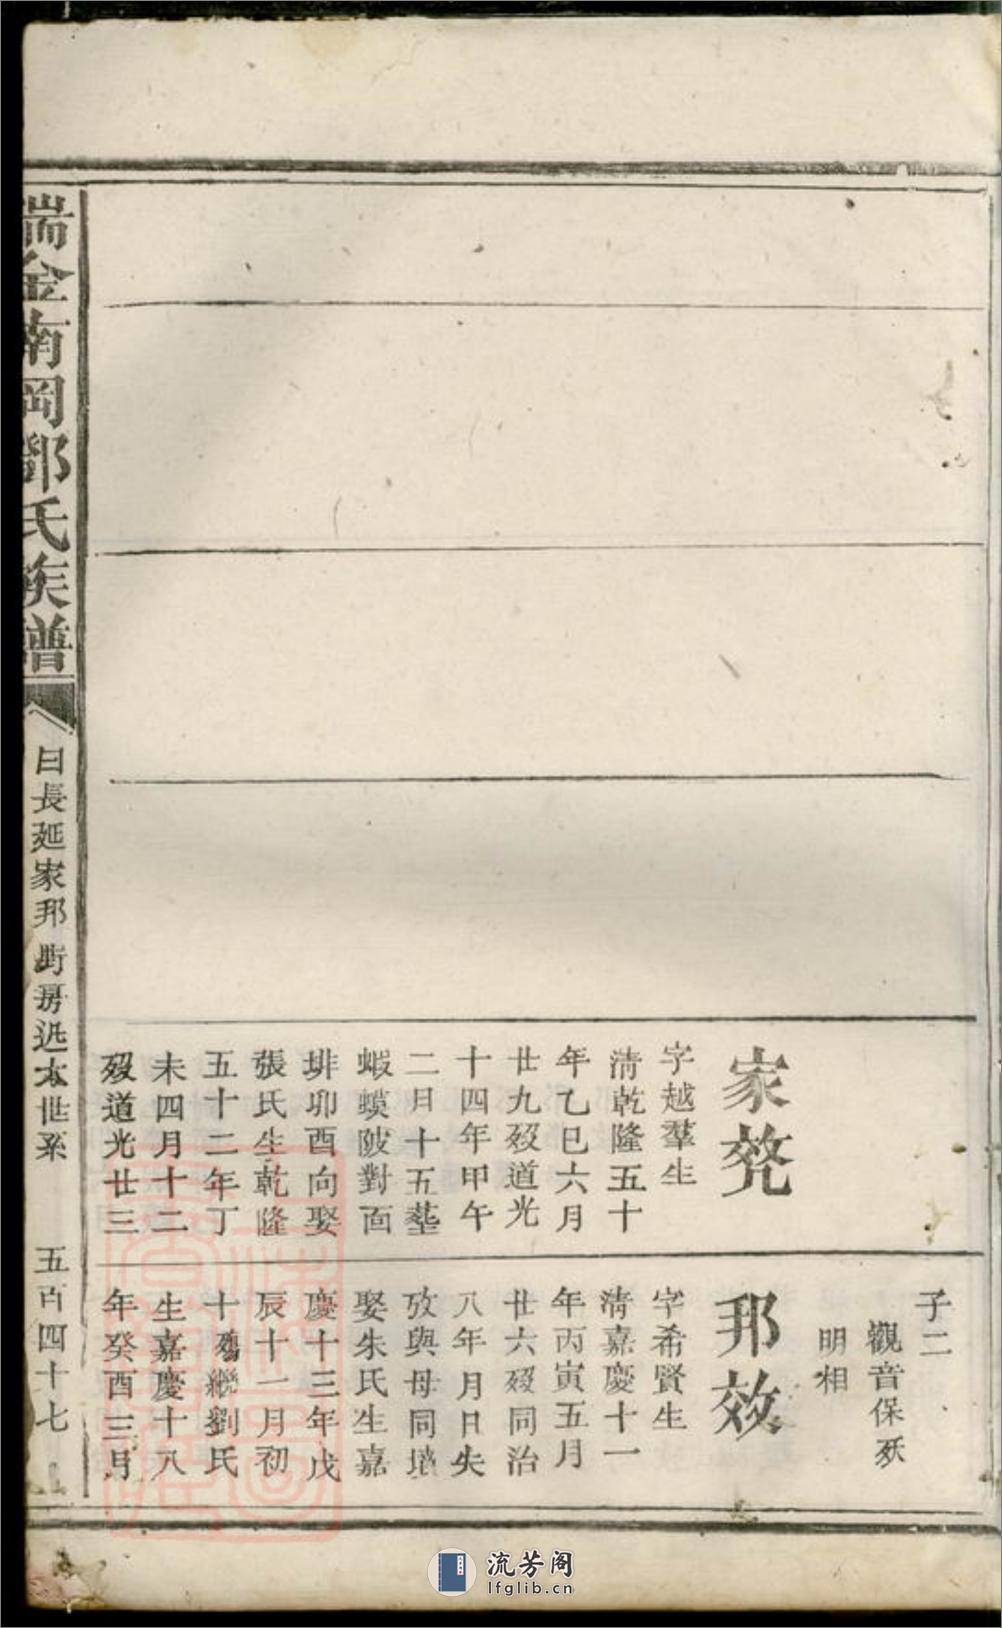 子二
觀音保殀
明相
家兟
字越羣生
清乾隆五十
年乙巳六月
廿九歿道光
十四年甲午
二月十五塟
蝦蟆陂對面
排卯酉向娶
張氏生乾隆
五十二年丁
未四月十二
歿道光廿三
邦效
字希賢生
清嘉慶十一
年丙寅五月
廿六歿同治
八年月日失
攷與母同墳
娶朱氏生嘉
慶十三年戊
辰十一月初
十殤繼劉氏
生嘉慶十八
年癸酉三月
瑞金南岡鄧氏族譜
日長延家邦 房近太世系
五百四十七
流芳阁
lfglib.cn